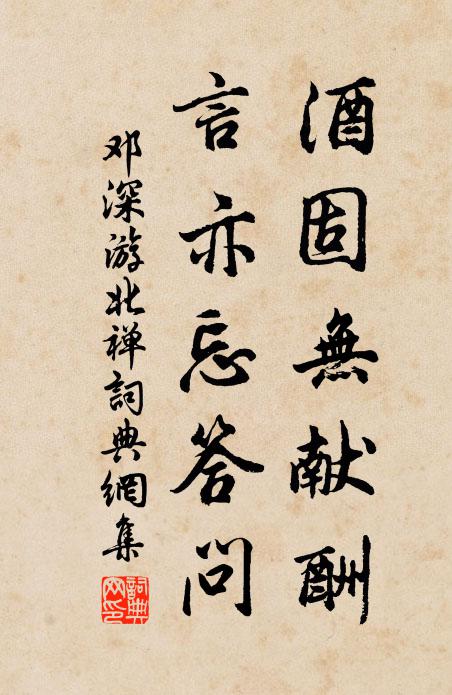 酒固無献酬
言亦忘答问
邓深游北禅詞典網集
詞典网印